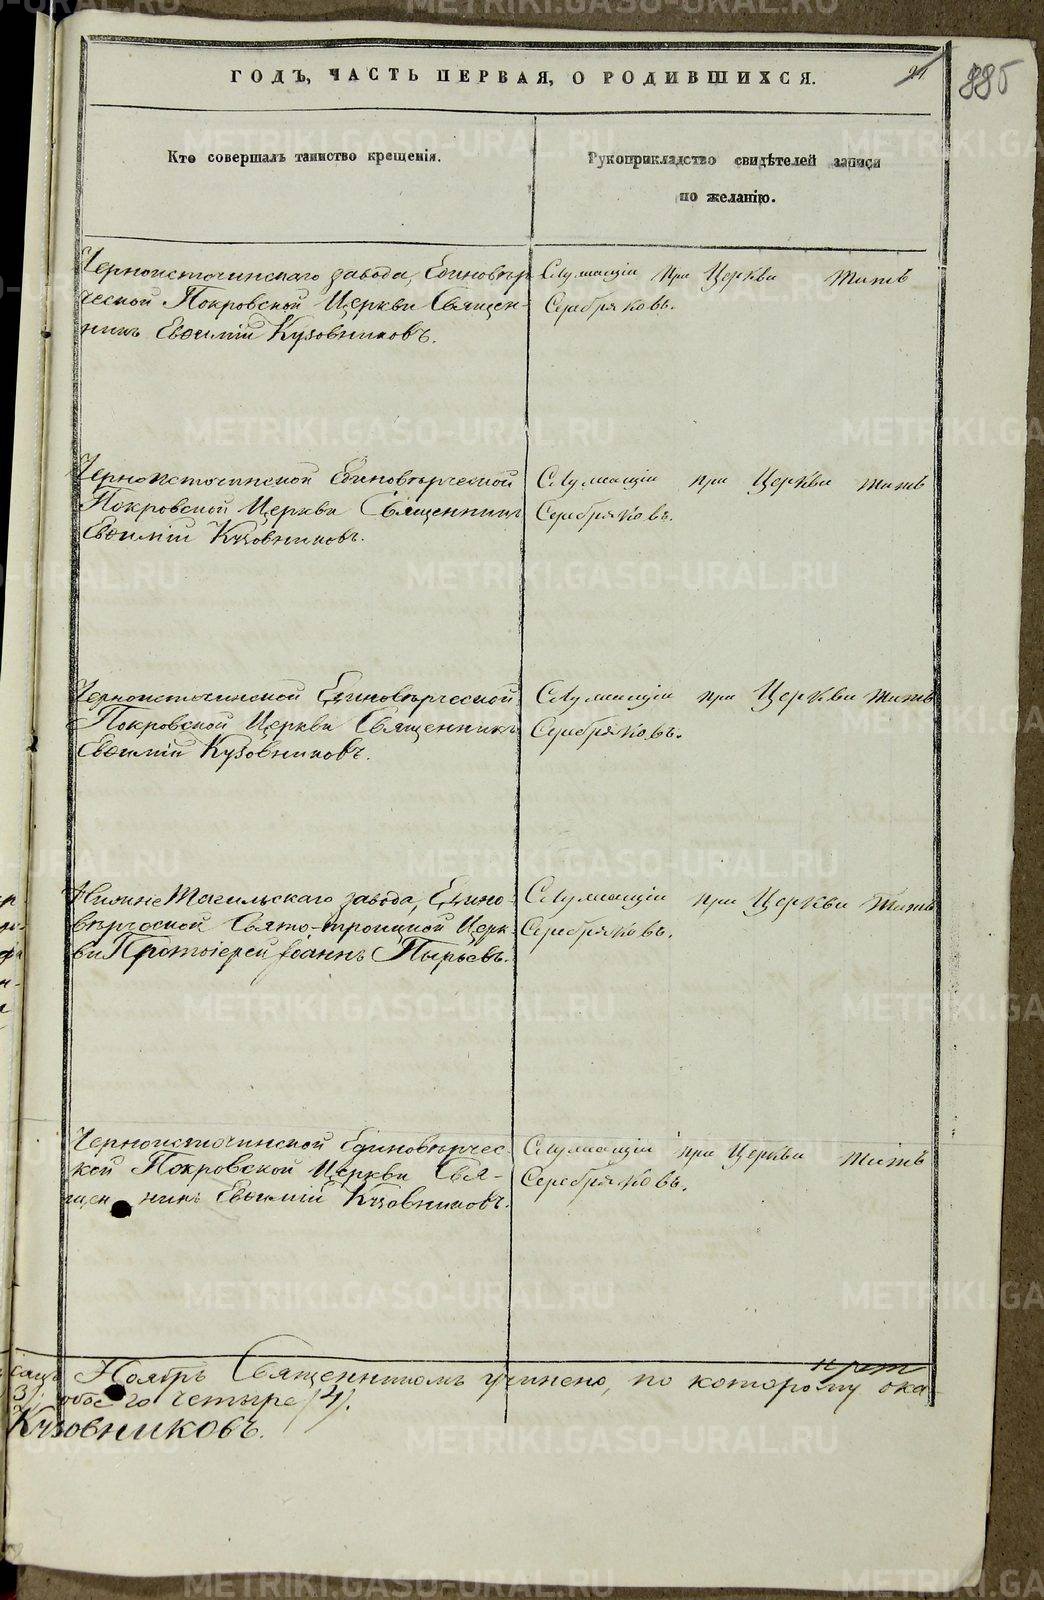 ГОДЪ, ЧАСТЬ ПЕРВАЯ, О РОДИВШИХСЯ.
885
Кто совершалъ таинство крещенія.
Рукоприкладство свидѣтелей записи
по желанію.
Черноисточинскаго завода, Единовѣр-
ческой Покровской Церкви Священ-
никъ Евѳимій Кузовниковъ.
Служащій при Церкви Титъ
Серебряковъ.
Черноисточинской Единовѣрческой
Покровской Церкви Священникъ
Евѳимій Кузовниковъ.
Служащій при Церкви Титъ
Серебряковъ.
Черноисточинской Единовѣрческой
Покровской Церкви Священникъ
Евѳимій Кузовниковъ.
Служащій при Церкви Титъ
Серебряковъ.
Нижне Тагильскаго завода, Едино-
вѣрческой Свято-троицкой Церк-
ви Протоіерей Іоаннъ Пырьевъ.
Служащій при Церкви Титъ
Серебряковъ.
Черноисточинской Единовѣрчес-
кой Покровской Церкви Свя-
щенникъ Евѳимій Кузовниковъ.
Служащій при Церкви Титъ
Серебряковъ.
Ноябрь Священникомъ учинено, по которому ока-
обоего четыре /4/.
Кузовниковъ.
METRIKI.GASO-URAL.RU